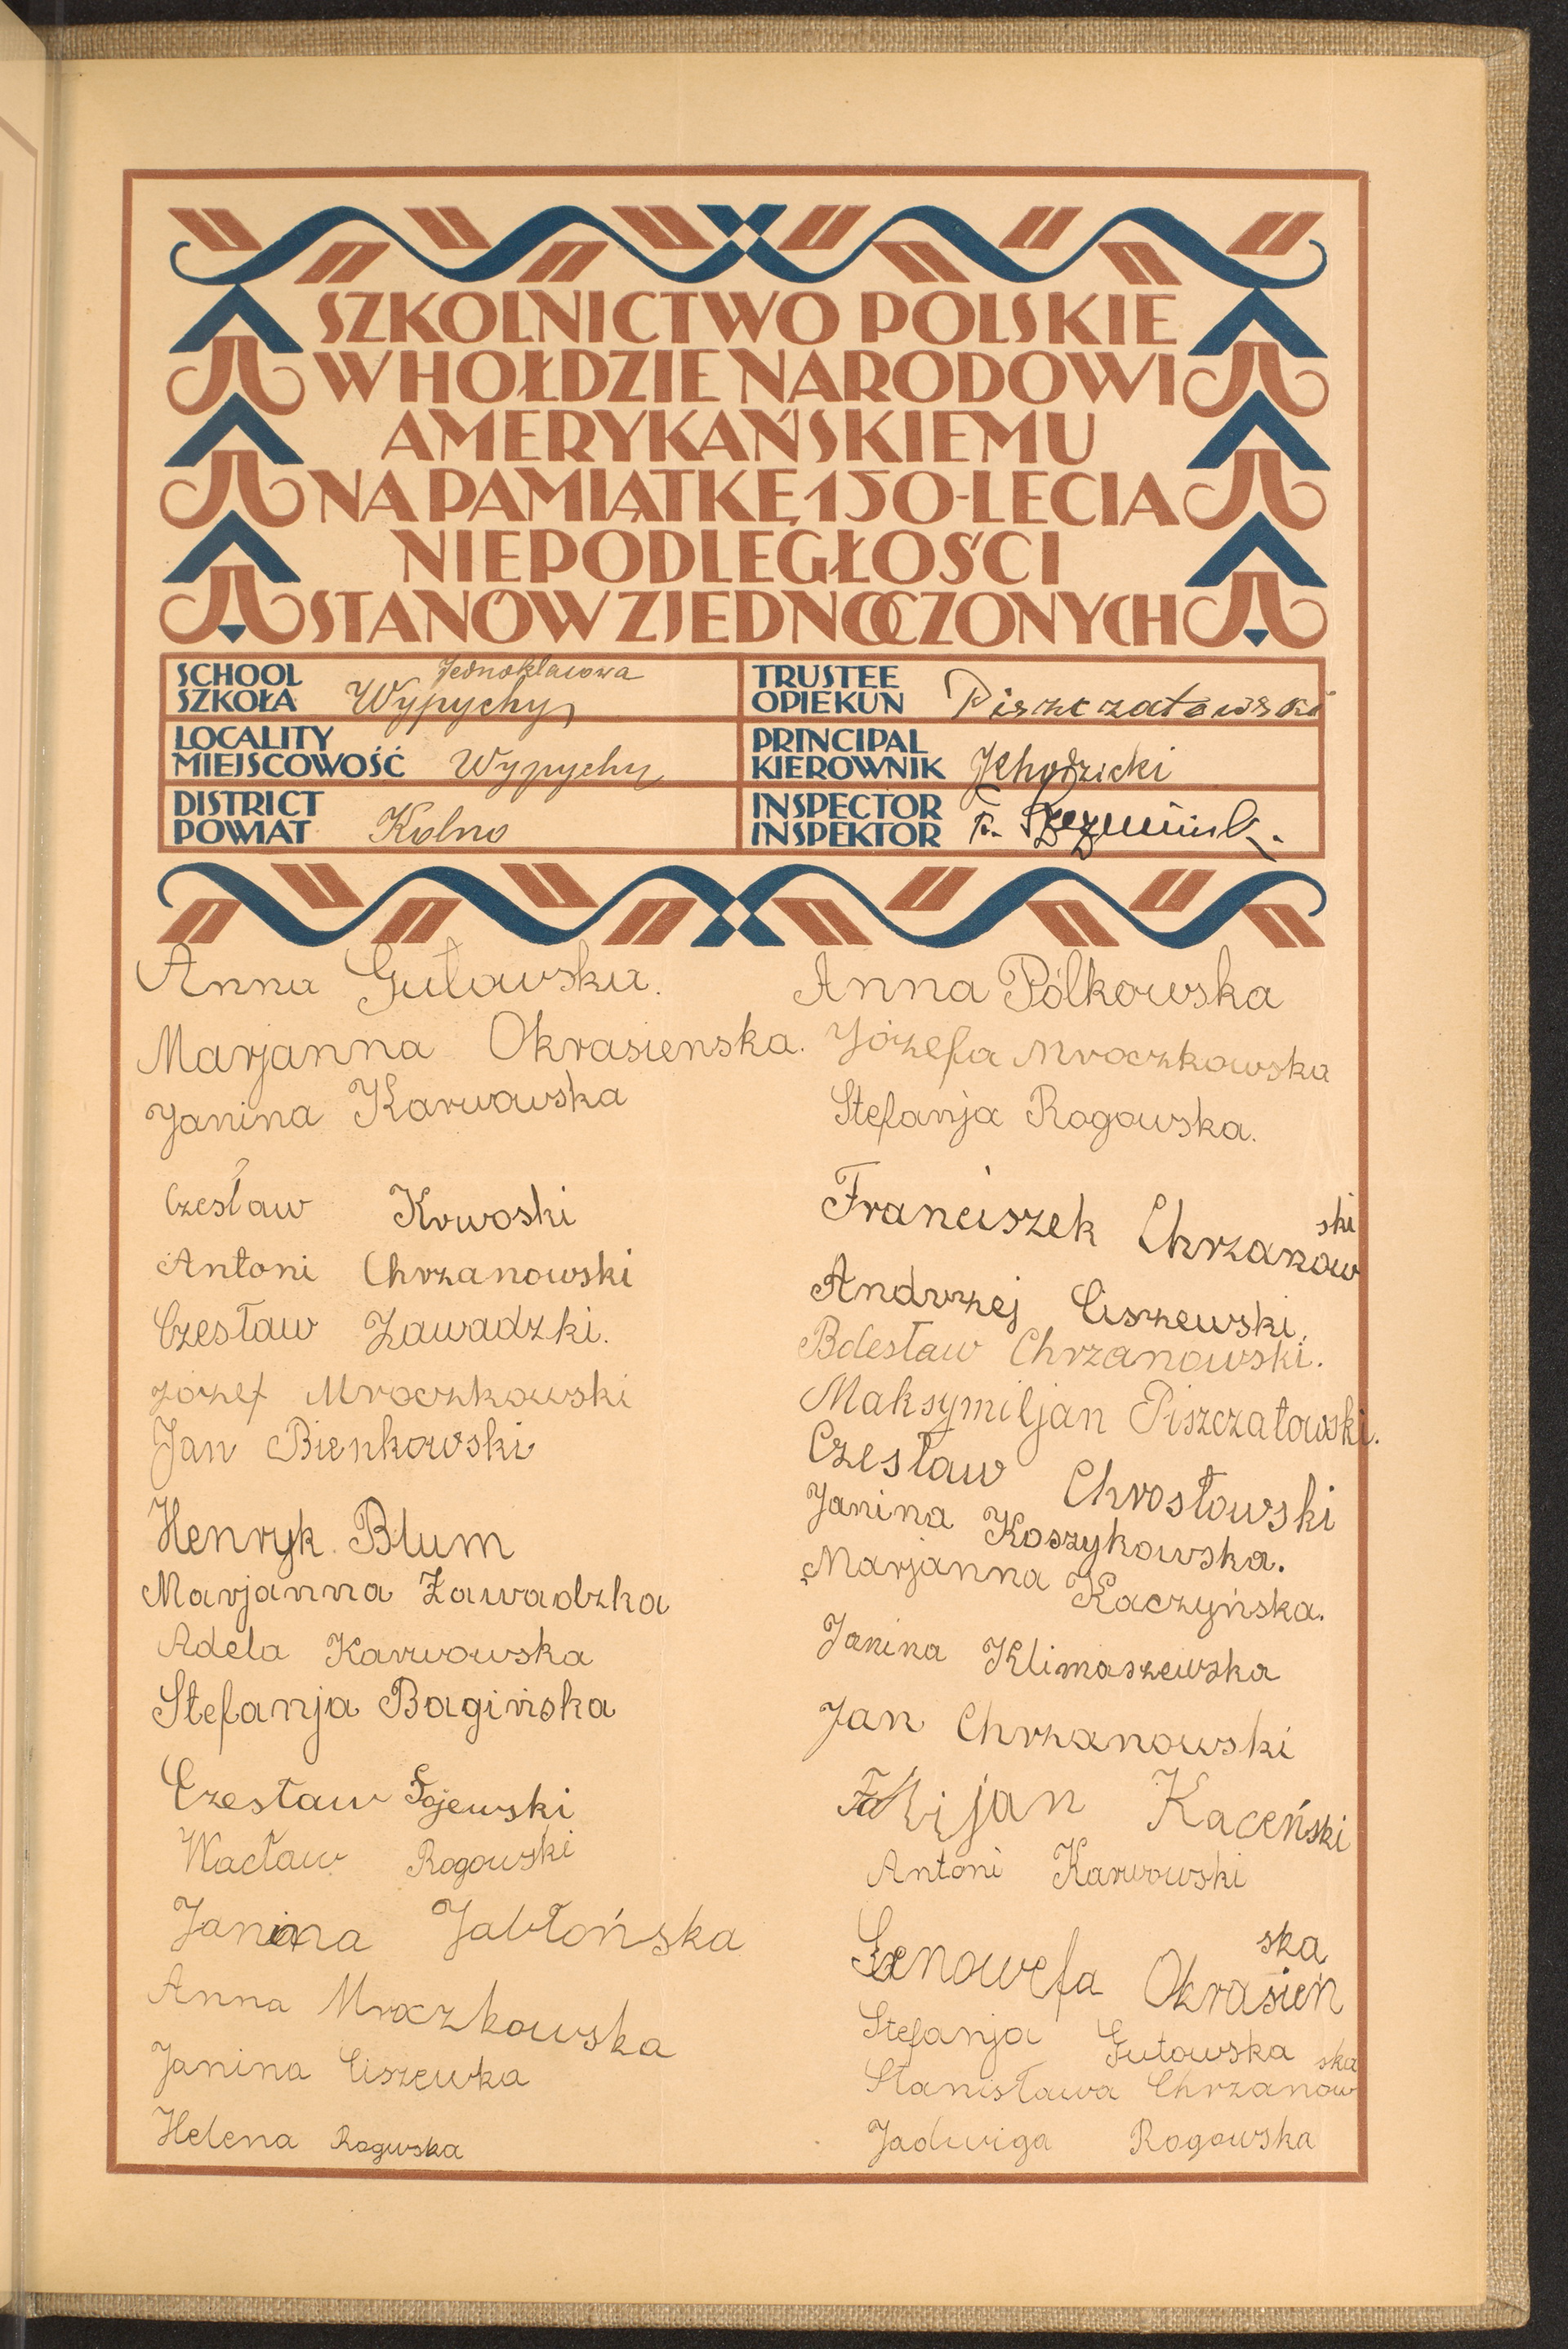 SZKOLNICTWO POLSKIE
W HOŁDZIE NARODOWI
AMERYKAŃSKIEMU
NA PAMIĄTKĘ 150-LECIA
NIEPODLEGŁOŚCI
STANÓW ZJEDNOCZONYCH
SCHOOL
SZKOŁA
Jednoklasowa
Wypychy
TRUSTEE
OPIEKUN
Piszczatowski
LOCALITY
MIEJSCOWOŚĆ
Wypychy
PRINCIPAL
KIEROWNIK
DISTRICT
POWIAT
Kolno
INSPECTOR
INSPEKTOR
Anna Gutowska.
Marjanna Okrasienska.
Janina Karwowska
Czesław Krwoski
Antoni Chrzanowski
Czesław Zawadzki.
Józef Mroczkowski
Jan Bienkowski
Henryk Blum
Marjanna Zawadzka
Adela Karwowska
Stefanja Bagińska
Czesław
Wacław Rogowski
Janina Jabłońska
Anna Mroczkowska
Janina Ciszewka
Helena Rogwska
Anna Pólkowska
Józefa Mroczkowska
Stefanja Rogowska.
Franciszek Chrzanowski
Andrzej Ciszewski.
Bolesław Chrzanowski.
Maksymiljan Piszczatowski.
Czesław Chrostowski
Janina Koszykowska.
Marjanna Kaczyńska.
Janina Klimaszewska
Jan Chrzanowski
Kaceński
Antoni Karwowski
Genowefa Okrasieńska
Stefanja Gutowska
Stanisława Chrzanowska
Jadwiga Rogowska